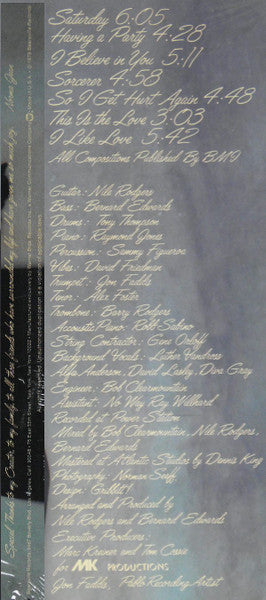 Saturday 6:05
Having a Party 4:28
I Believe in You 5:11
Sorcerer 4:58
So I Get Hurt Again 4:48
This Is the Love 3:03
I Like Love 5:42
All Compositions Published By BMI
Guitar: Nile Rodgers
Bass: Bernard Edwards
Drums: Tony Thompson
Piano: Raymond Jones
Percussion: Sammy Figueroa
Vibes: David Friedman
Trumpet: Jon Faddis
Tenor: Alex Foster
Trombone: Barry Rodgers
Acoustic Piano: Robt Sabino
String Contractor: Gene Orloff
Background Vocals: Luther Vandross
Alva Anderson, David Lasky, Diva Gray
Engineer: Bob Clearmountain
Assistant: No Way Ray Willhard
Recorded at Power Station
Mixed by Bob Clearmountain, Nile Rodgers,
Bernard Edwards
Mastered at Atlantic Studios by Dennis King
Photography: Norman Seeff
Design: Gribbitt!
Arranged and Produced by
Nile Rodgers and Bernard Edwards
Executive Producers:
Marc Kreiner and Tom Cossie
for MK PRODUCTIONS
Jon Faddis, Pablo Recording Artist
Special Thanks to my Creator, to my family, to all those friends who have surrounded my life and have given me so much joy. Norma Jean